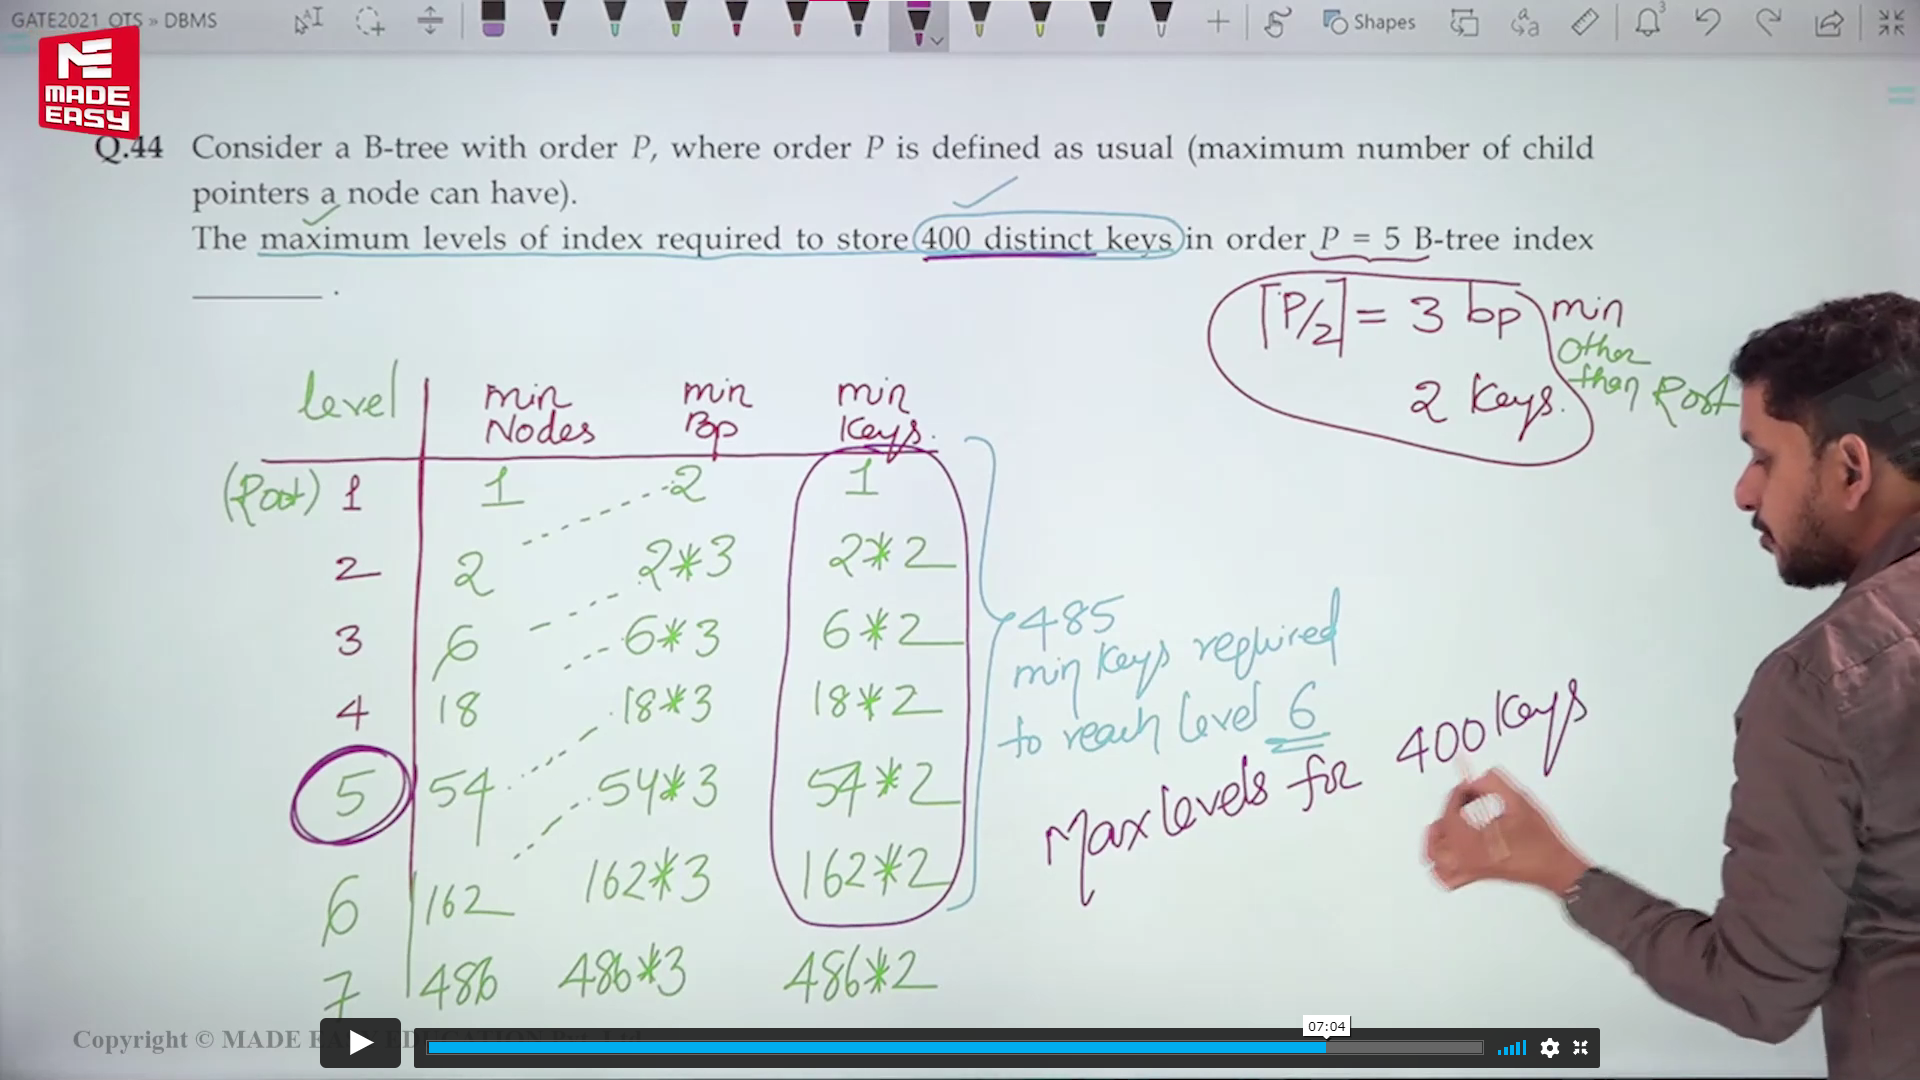 GATE2021_OTS » DBMS
Shapes
3
ME
MADE
EASY
Q.44 Consider a B-tree with order P, where order P is defined as usual (maximum number of child
pointers a node can have).
The maximum levels of index required to store 400 distinct keys in order P = 5 B-tree index
________ .
⌈P/2⌉ = 3 bp min
2 Keys. Other than Root
level min Nodes min Bp min Keys.
(Root) 1 1 2 1
2 2 2*3 2*2
3 6 6*3 6*2
4 18 18*3 18*2
5 54 54*3 54*2
6 162 162*3 162*2
7 486 486*3 486*2
485
min keys required
to reach level 6
Max levels for 400 Keys
Copyright © MADE
07:04